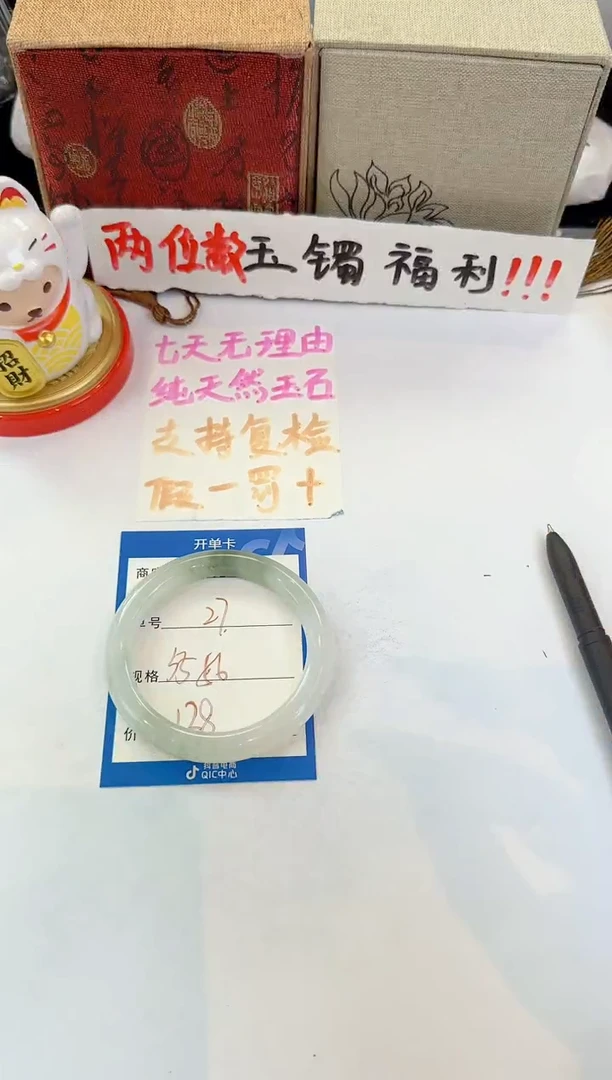 两位数玉镯福利!!!
招
財
七天无理由
纯天然玉石
支持复检
假一罚十
开单卡
商
号 27
规格
价 128
抖音电商
QIC中心